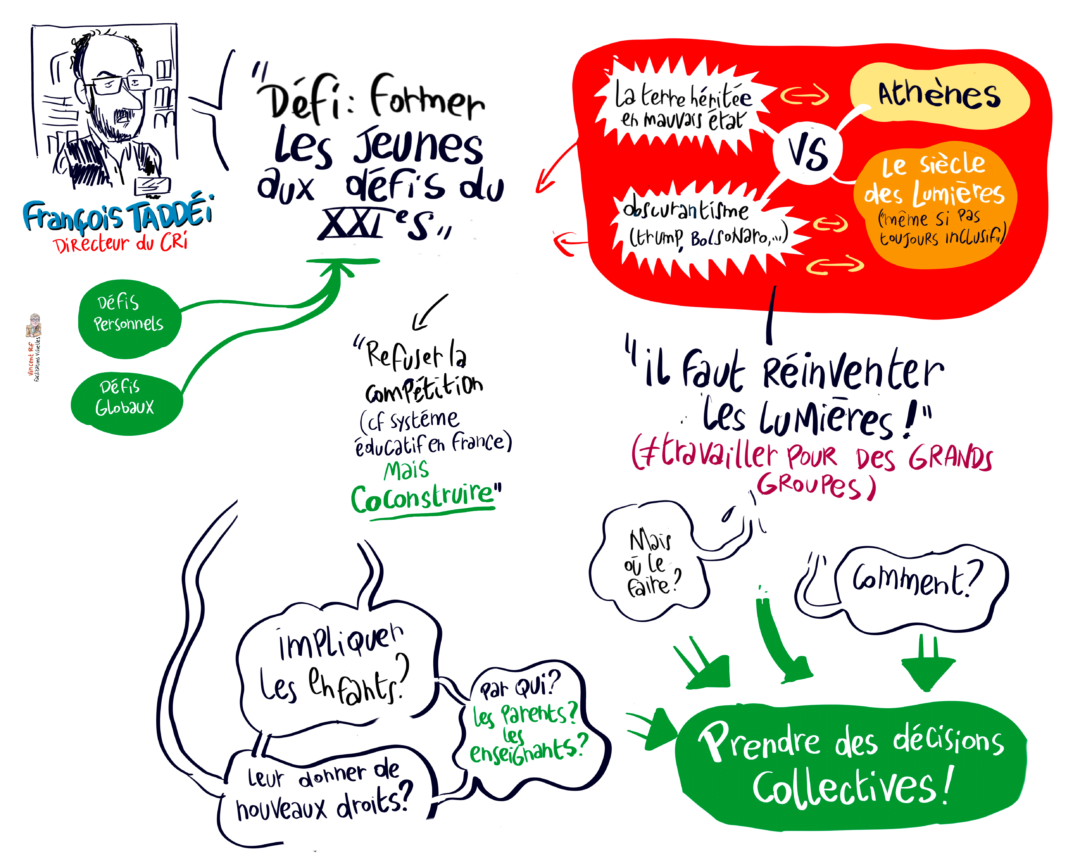 François TADDÉi
Directeur du CRi
"Défi: former
Les Jeunes
aux défis du
XXIe s"
Défis
Personnels
Défis
Globaux
"Refuser la
compétition
(cf système
éducatif en france)
Mais
Coconstruire"
La terre héritée
en mauvais état
VS
Athènes
obscurantisme
(trump, Bolsonaro,...)
Le siècle
des Lumières
(même si pas
toujours inclusif)
"il faut Réinventer
Les Lumières!"
(≠travailler POUR DES GRANDS
GROUPES)
Mais
où le
faire?
Comment?
impliquer
Les enfants?
Par Qui?
Les Parents?
Les
enseignants?
Leur donner de
nouveaux droits?
Prendre des décisions
Collectives!
Vincent Rif